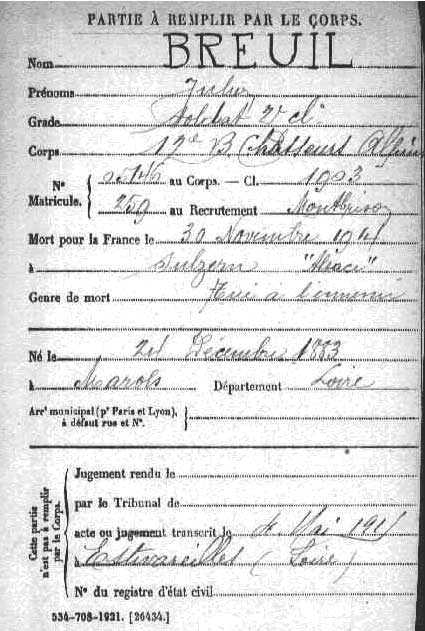 PARTIE À REMPLIR PAR LE CORPS.
Nom BREUIL
Prénoms Jules
Grade Soldat 2e cl
Corps 12e B. Chasseurs Alpins
N° Matricule. { au Corps. — Cl. 1903
259 au Recrutement Montbrison
Mort pour la France le 30 Novembre 191
à Sulzern "Alsace"
Genre de mort Tué à l'ennemi
Né le 24 Décembre 1883
à Marols Département Loire
Arrt municipal (pr Paris et Lyon), à défaut rue et N°. }
Cette partie n'est pas à remplir par le Corps. {
Jugement rendu le
par le Tribunal de
acte ou jugement transcrit le 4 Mai 191
à Estivareilles (Loire)
N° du registre d'état civil
534-708-1921. [26434.]